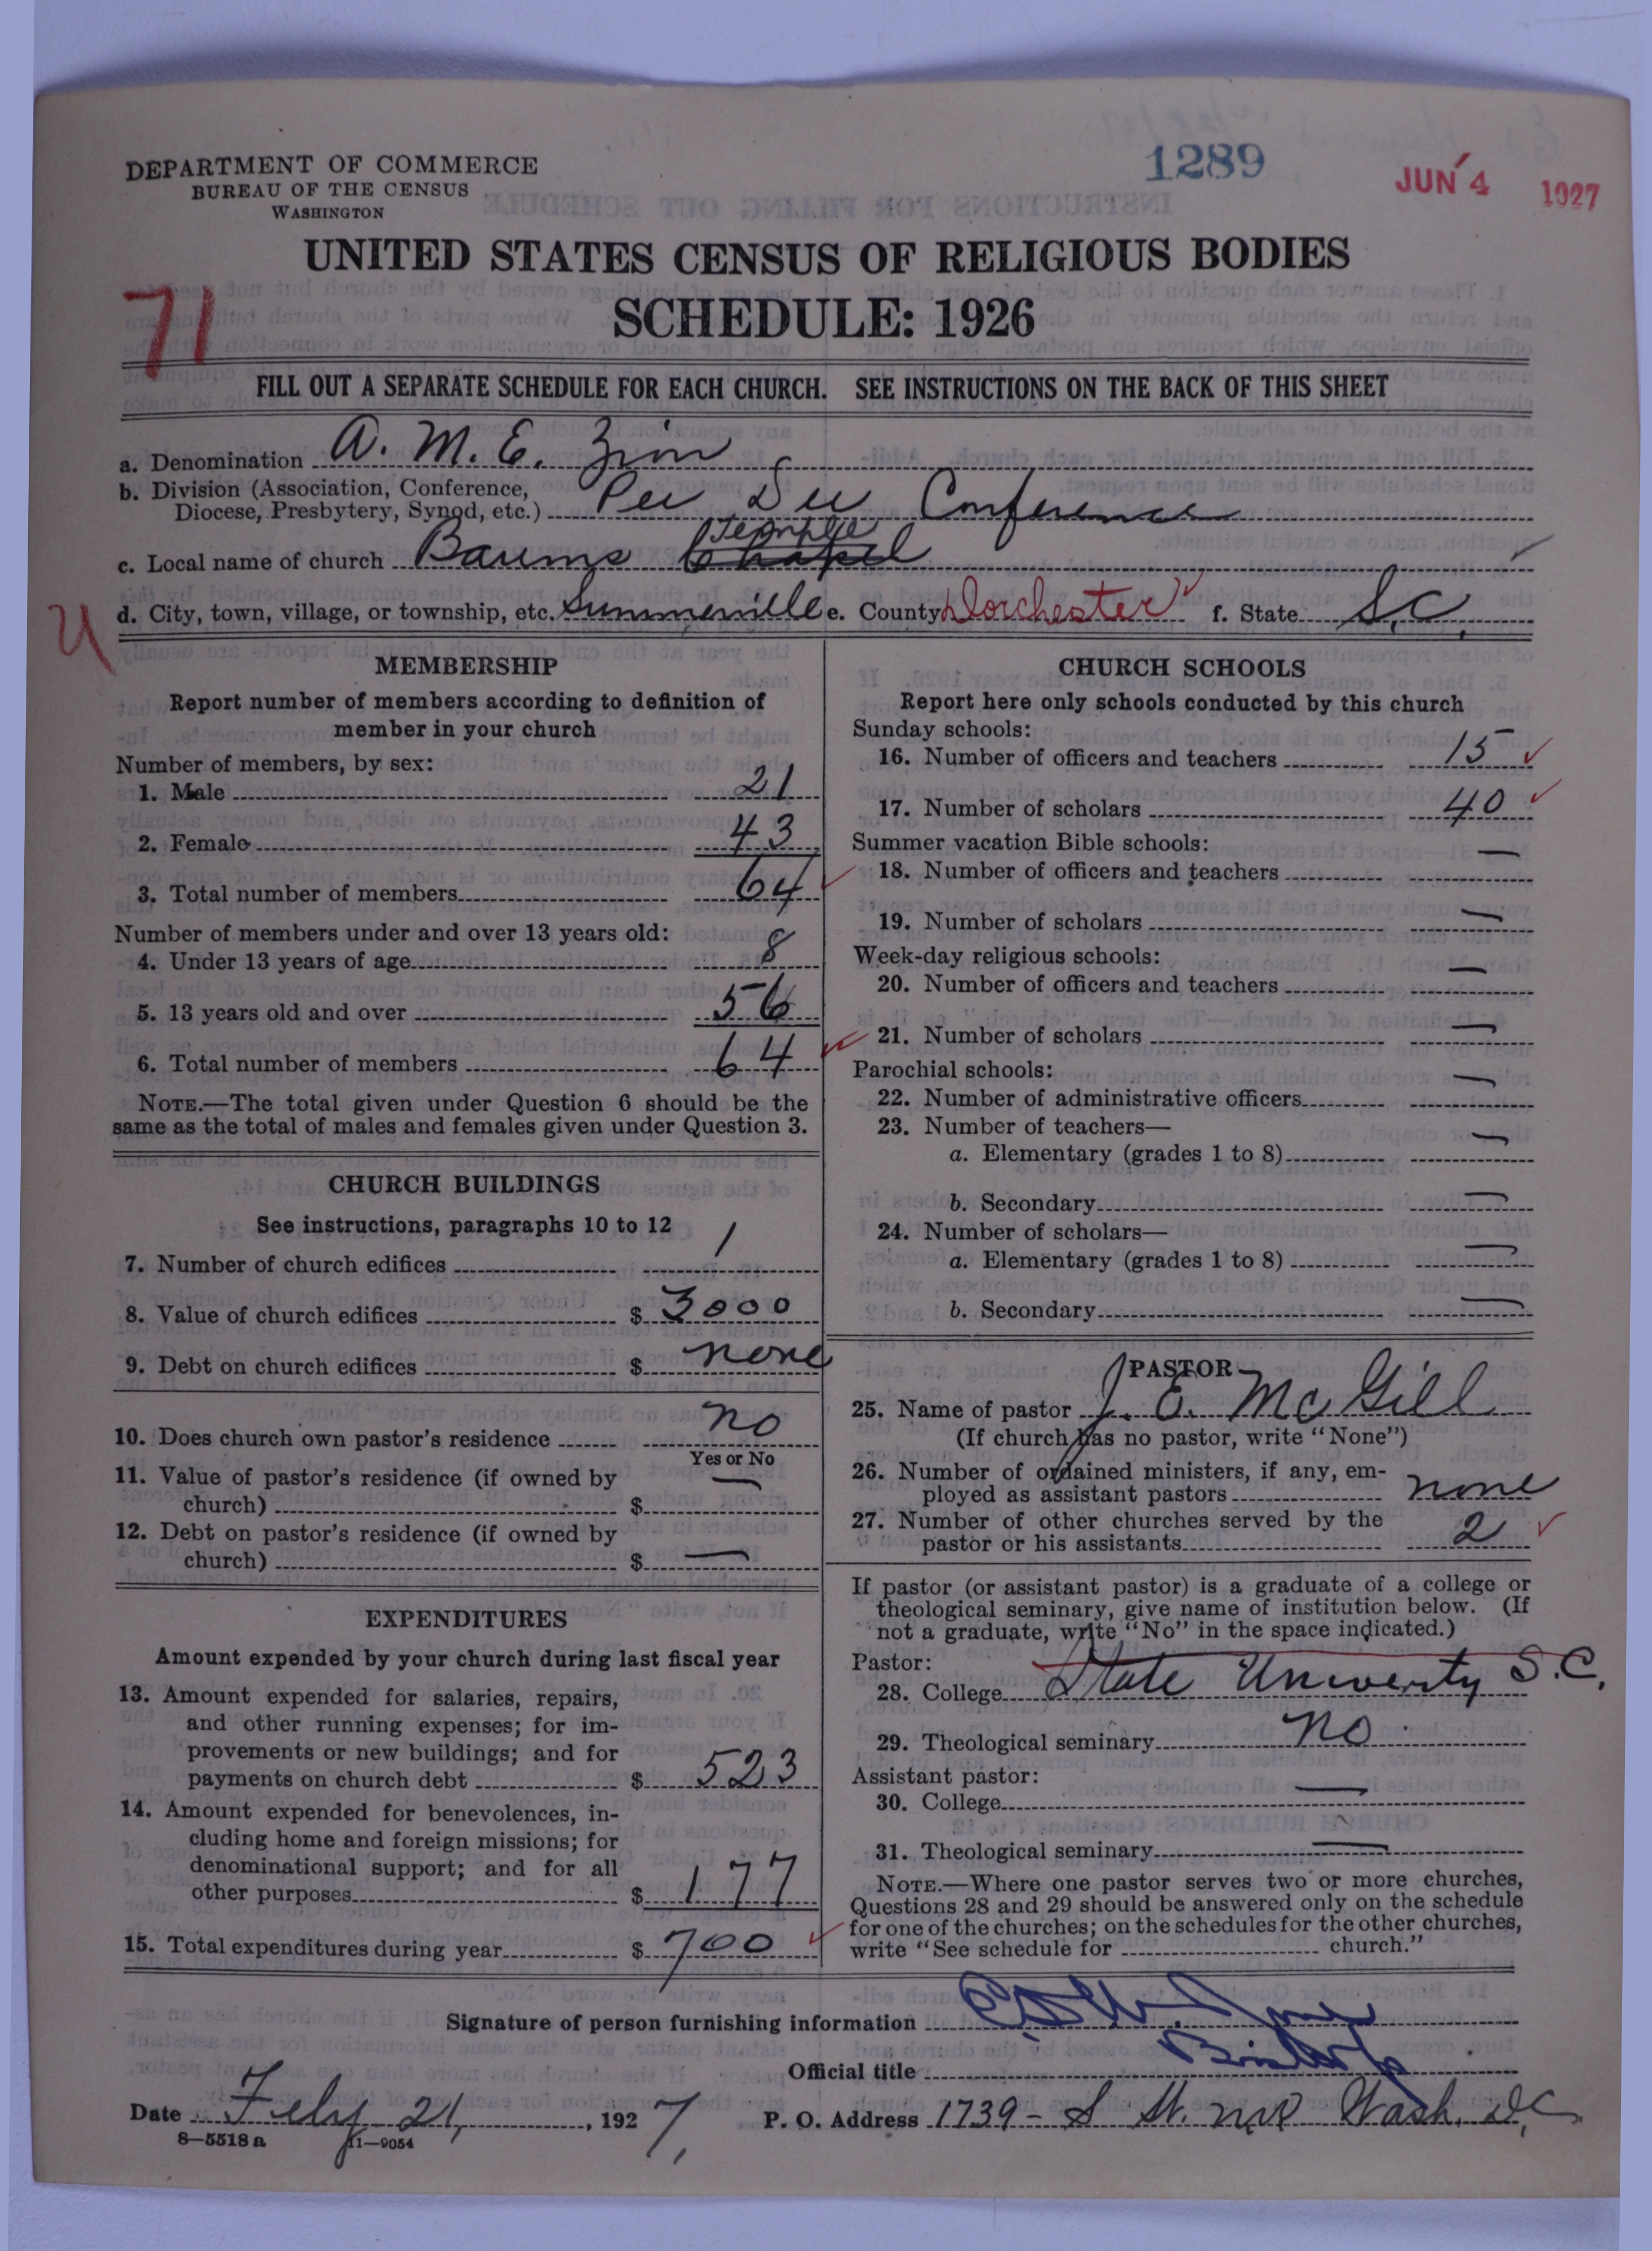 1289
JUN 4 1927
DEPARTMENT OF COMMERCE
BUREAU OF THE CENSUS
WASHINGTON
UNITED STATES CENSUS OF RELIGIOUS BODIES
SCHEDULE: 1926
71
FILL OUT A SEPARATE SCHEDULE FOR EACH CHURCH. SEE INSTRUCTIONS ON THE BACK OF THIS SHEET
a. Denomination A. M. E. Zion
b. Division (Association, Conference,
Diocese, Presbytery, Synod, etc.) Pee Dee Conference
Temple
c. Local name of church Baums Chapel
U
d. City, town, village, or township, etc. Summerville e. County Dorchester f. State S.C.
MEMBERSHIP
Report number of members according to definition of
member in your church
Number of members, by sex:
1. Male 21
2. Female 43
3. Total number of members 64
Number of members under and over 13 years old:
4. Under 13 years of age 8
5. 13 years old and over 56
6. Total number of members 64
NOTE.—The total given under Question 6 should be the
same as the total of males and females given under Question 3.
CHURCH BUILDINGS
See instructions, paragraphs 10 to 12
7. Number of church edifices 1
8. Value of church edifices $ 3000
9. Debt on church edifices $ none
10. Does church own pastor's residence no
Yes or No
11. Value of pastor's residence (if owned by
church) $ —
12. Debt on pastor's residence (if owned by
church) $ —
EXPENDITURES
Amount expended by your church during last fiscal year
13. Amount expended for salaries, repairs,
and other running expenses; for im-
provements or new buildings; and for
payments on church debt $ 523
14. Amount expended for benevolences, in-
cluding home and foreign missions; for
denominational support; and for all
other purposes $ 177
15. Total expenditures during year $ 700
CHURCH SCHOOLS
Report here only schools conducted by this church
Sunday schools:
16. Number of officers and teachers 15
17. Number of scholars 40
Summer vacation Bible schools:
18. Number of officers and teachers —
19. Number of scholars —
Week-day religious schools:
20. Number of officers and teachers —
21. Number of scholars —
Parochial schools:
22. Number of administrative officers —
23. Number of teachers—
a. Elementary (grades 1 to 8) —
b. Secondary —
24. Number of scholars—
a. Elementary (grades 1 to 8) —
b. Secondary —
PASTOR
25. Name of pastor J. E. McGill
(If church has no pastor, write "None")
26. Number of ordained ministers, if any, em-
ployed as assistant pastors none
27. Number of other churches served by the
pastor or his assistants 2
If pastor (or assistant pastor) is a graduate of a college or
theological seminary, give name of institution below. (If
not a graduate, write "No" in the space indicated.)
Pastor:
28. College State Univerity S.C.
29. Theological seminary no
Assistant pastor:
30. College —
31. Theological seminary —
NOTE.—Where one pastor serves two or more churches,
Questions 28 and 29 should be answered only on the schedule
for one of the churches; on the schedules for the other churches,
write "See schedule for church."
Signature of person furnishing information
Official title Bishop
Date Feby 21, 1927, P. O. Address 1739 - S St. NW Wash. D.C.
8—5518 a 11—9054